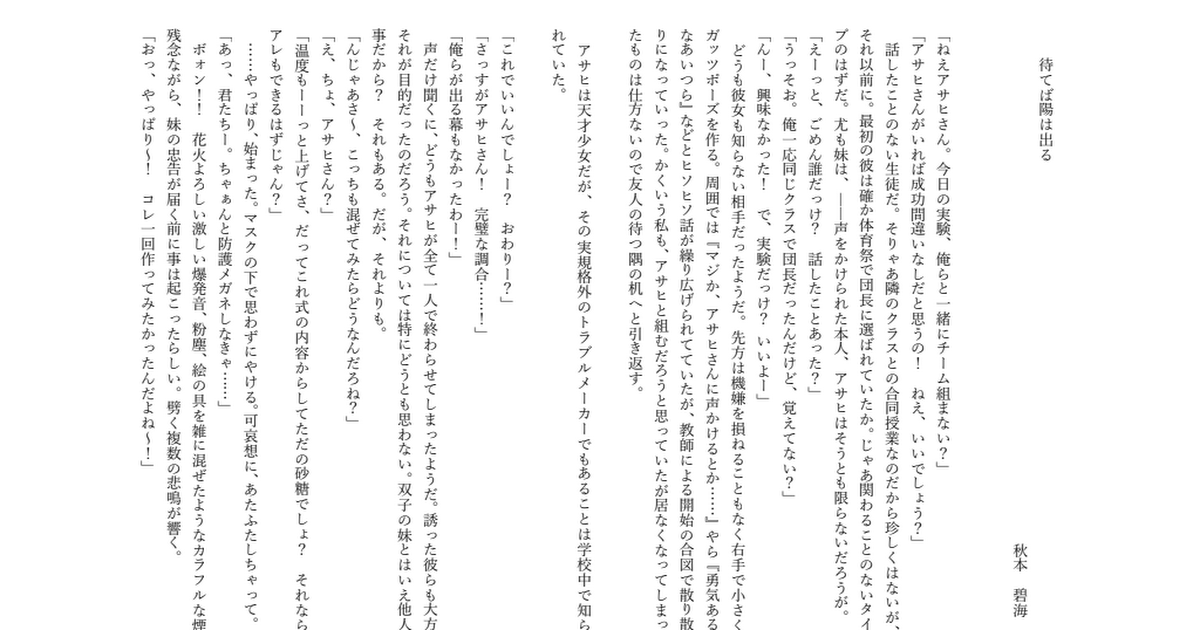 待てば陽は出る
秋本　碧海
「ねえアサヒさん。今日の実験、俺らと一緒にチーム組まない？」
「アサヒさんがいれば成功間違いなしだと思うの！　ねえ、いいでしょう？」
　話したことのない生徒だ。そりゃあ隣のクラスとの合同授業なのだから珍しくはないが、
それ以前に。最初の彼は確か体育祭で団長に選ばれていたか。じゃあ関わることのないタイ
プのはずだ。尤も妹は、――声をかけられた本人、アサヒはそうとも限らないだろうが。
「えーっと、ごめん誰だっけ？　話したことあった？」
「うっそお。俺一応同じクラスで団長だったんだけど、覚えてない？」
「んー、興味なかった！　で、実験だっけ？　いいよー」
　どうも彼女も知らない相手だったようだ。先方は機嫌を損ねることもなく右手で小さく
ガッツポーズを作る。周囲では『マジか、アサヒさんに声かけるとか……』やら『勇気ある
なあいつら』などとヒソヒソ話が繰り広げられてていたが、教師による開始の合図で散り散
りになっていった。かくいう私も、アサヒと組むだろうと思っていたが居なくなってしまっ
たものは仕方ないので友人の待つ隅の机へと引き返す。
　アサヒは天才少女だが、その実規格外のトラブルメーカーでもあることは学校中で知ら
れていた。
「これでいいんでしょー？　おわりー？」
「さっすがアサヒさん！　完璧な調合……！」
「俺らが出る幕もなかったわー！」
　声だけ聞くに、どうもアサヒが全て一人で終わらせてしまったようだ。誘った彼らも大方
それが目的だったのだろう。それについては特にどうとも思わない。双子の妹とはいえ他人
事だから？　それもある。だが、それよりも。
「んじゃあさ～、こっちも混ぜてみたらどうなんだろね？」
「え、ちょ、アサヒさん？」
「温度もーーっと上げてさ、だってこれ式の内容からしてただの砂糖でしょ？　それなら
アレもできるはずじゃん？」
　……やっぱり、始まった。マスクの下で思わずにやける。可哀想に、あたふたしちゃって。
「あっ、君たちー。ちゃぁんと防護メガネしなきゃ……」
　ボォン！！　花火よろしい激しい爆発音、粉塵、絵の具を雑に混ぜたようなカラフルな煙
残念ながら、妹の忠告が届く前に事は起こったらしい。劈く複数の悲鳴が響く。
「おっ、やっぱり～！　コレ一回作ってみたかったんだよね～！」